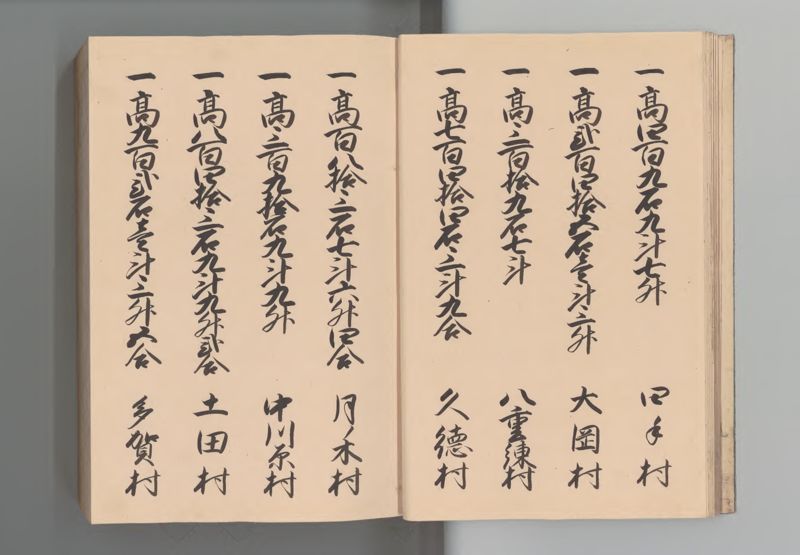 一高四百九石九斗七升 四手村
一高弐百四拾五石壱斗三升 大岡村
一高三百拾九石七斗 八重練村
一高七百四拾四石三斗九合 久徳村
一高百八拾三石七斗六升四合 月木村
一高三百九拾石九斗九升 中川原村
一高八百四拾三石九斗九升弐合 土田村
一高九百弐石壱斗三升五合 多賀村